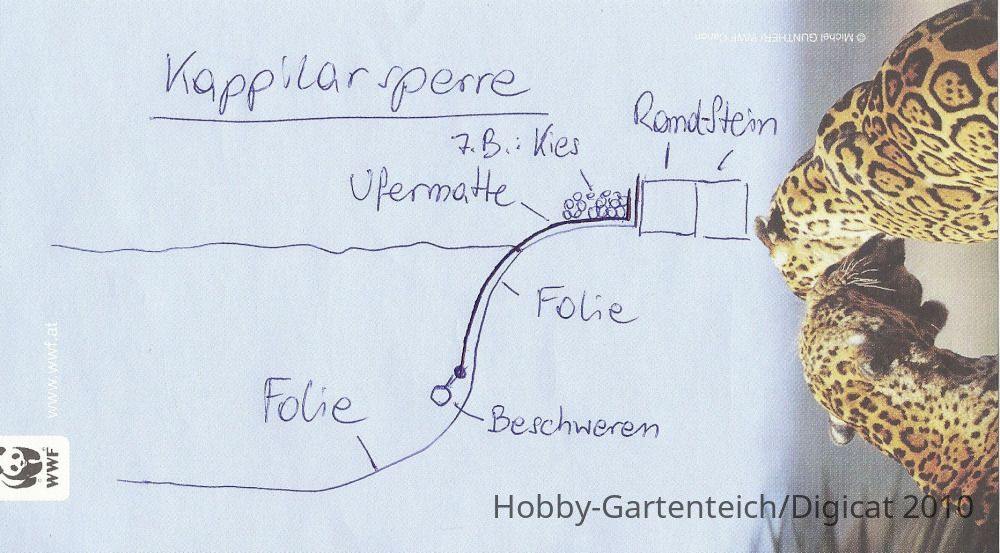 © Michel GUNTHER/ WWF Canon
Kappilarsperre
Rand-Stein
z.B.: Kies
Ufermatte
Folie
www.wwf.at
Folie
Beschweren
WWF
Hobby-Gartenteich/Digicat 2010